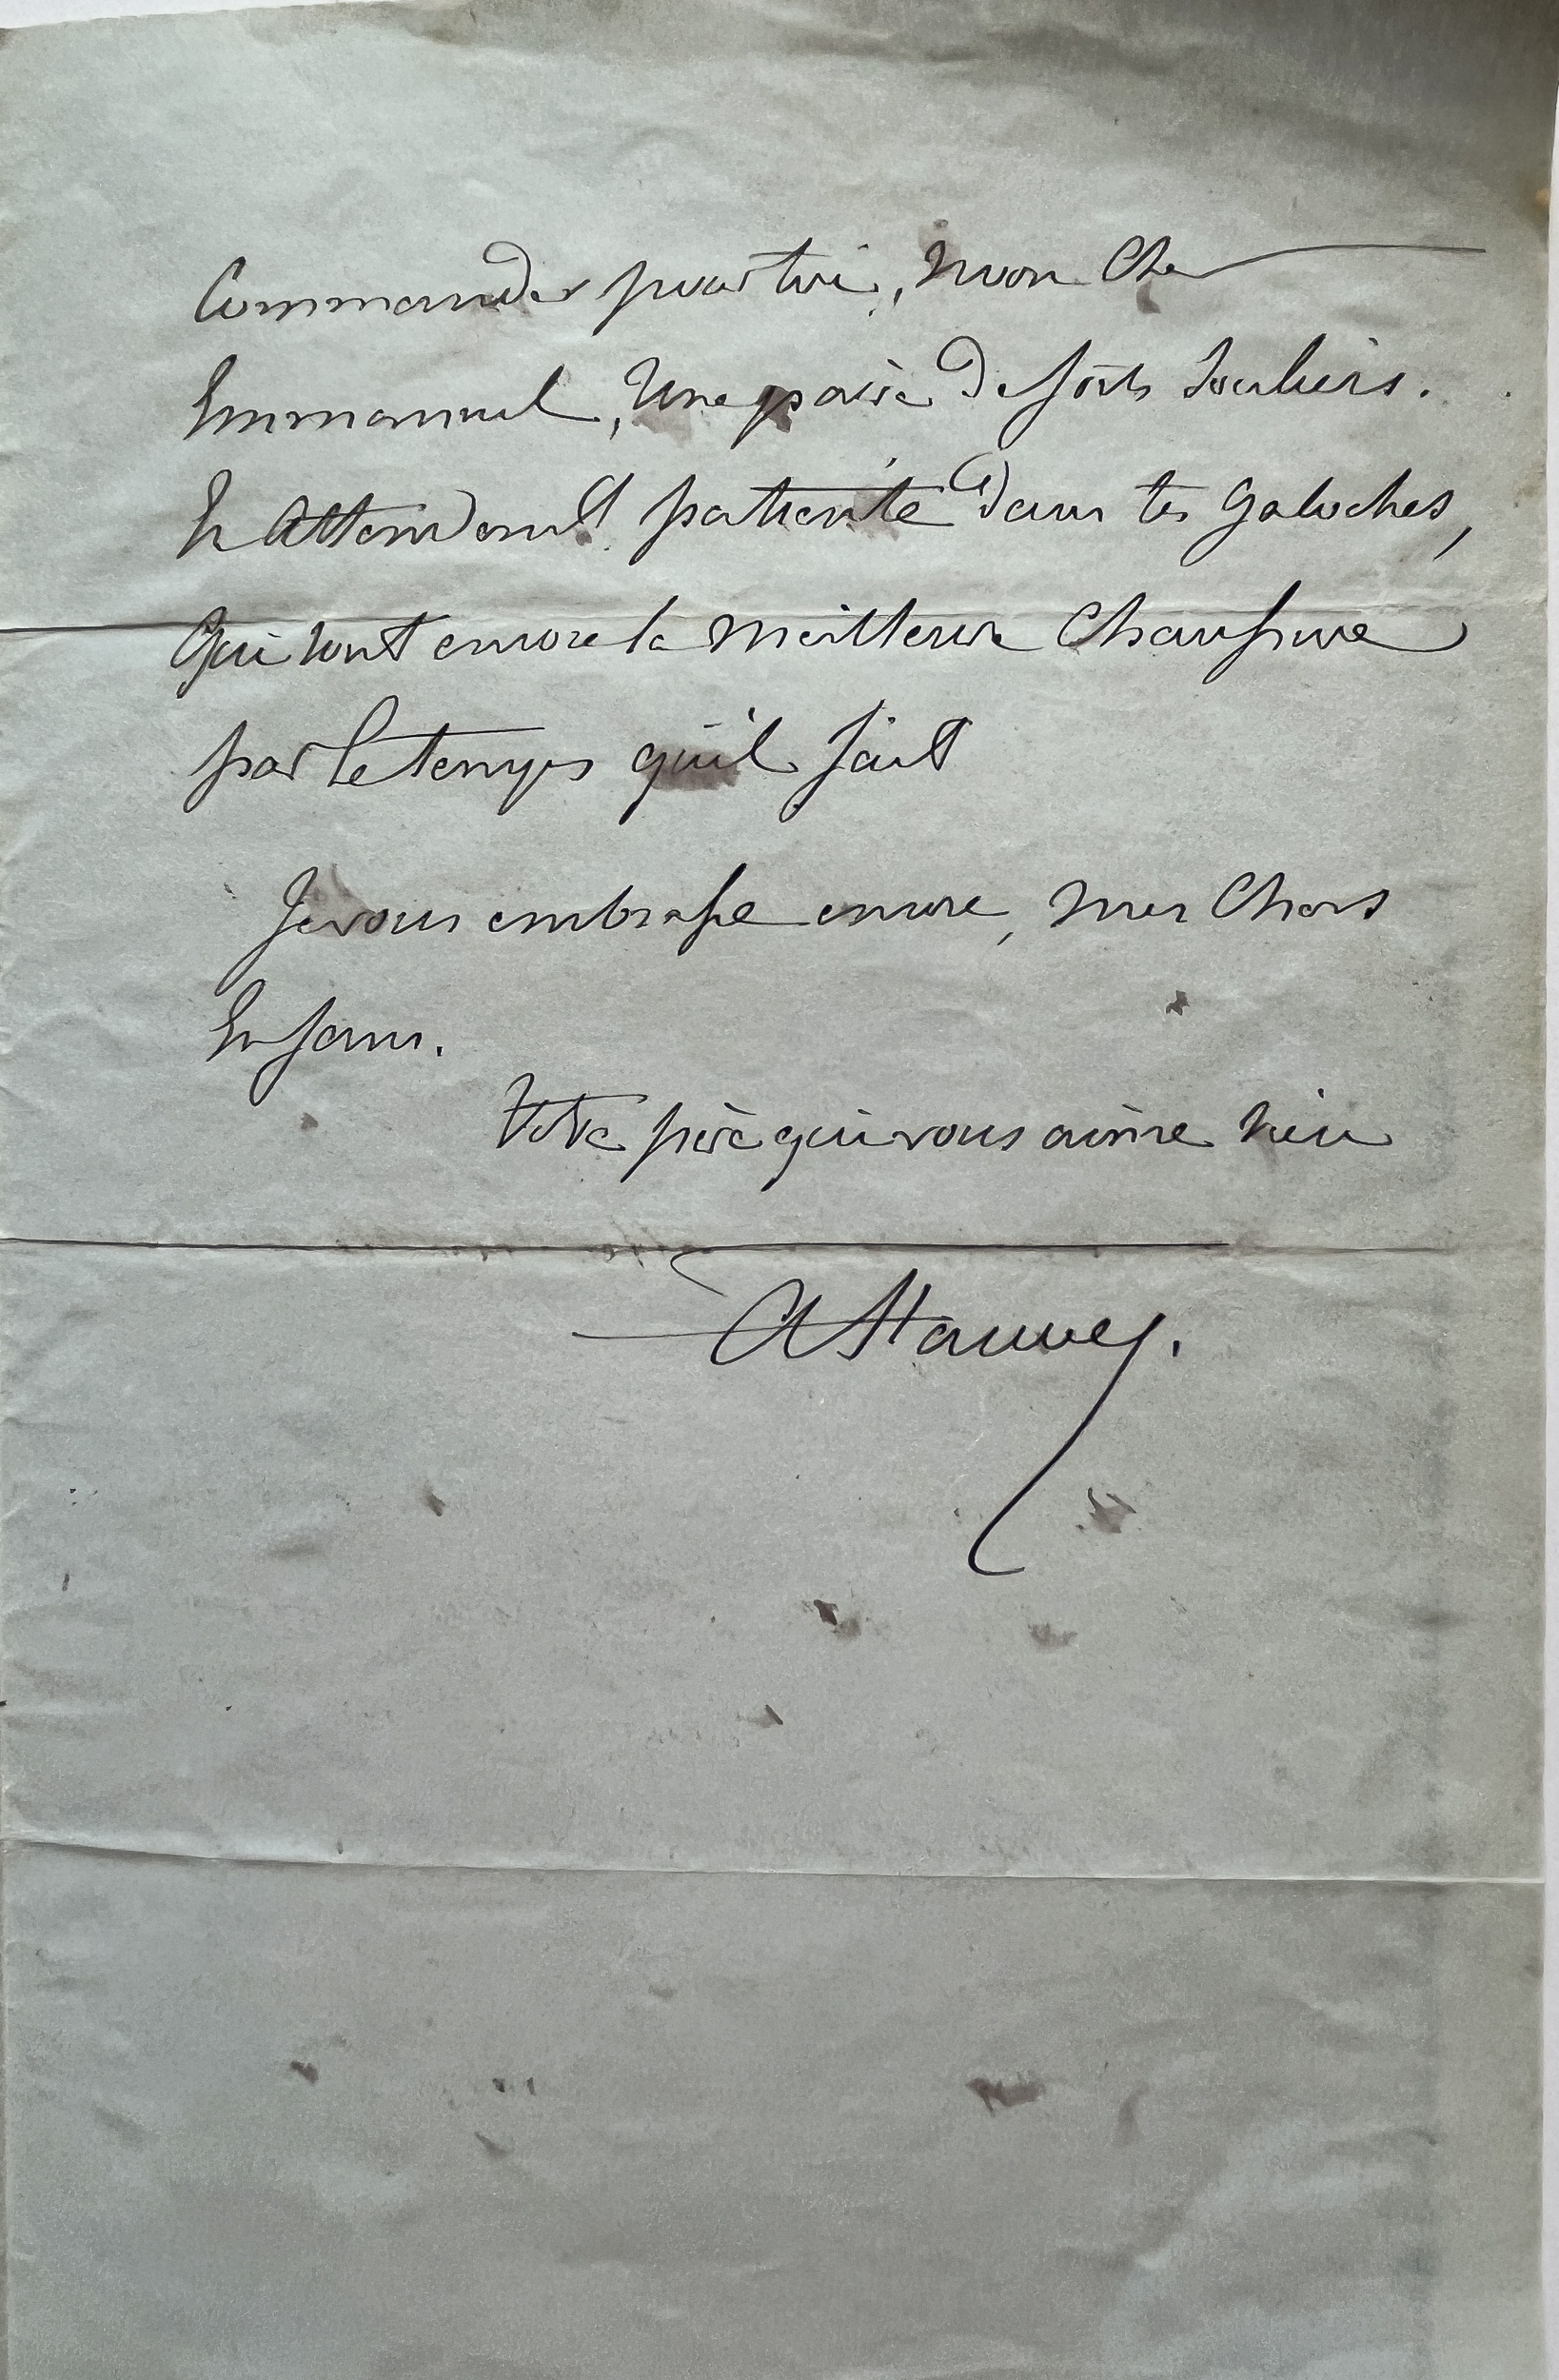 Commander pour toi, mon Cher
Emmanuel, Une paire de forts souliers.
En Attendant patiente dans tes Galoches,
Qui sont encore la Meilleure Chaussure
par le temps qu'il fait
Je vous embrasse encore, mes Chers
Enfans.
Votre père qui vous aime bien